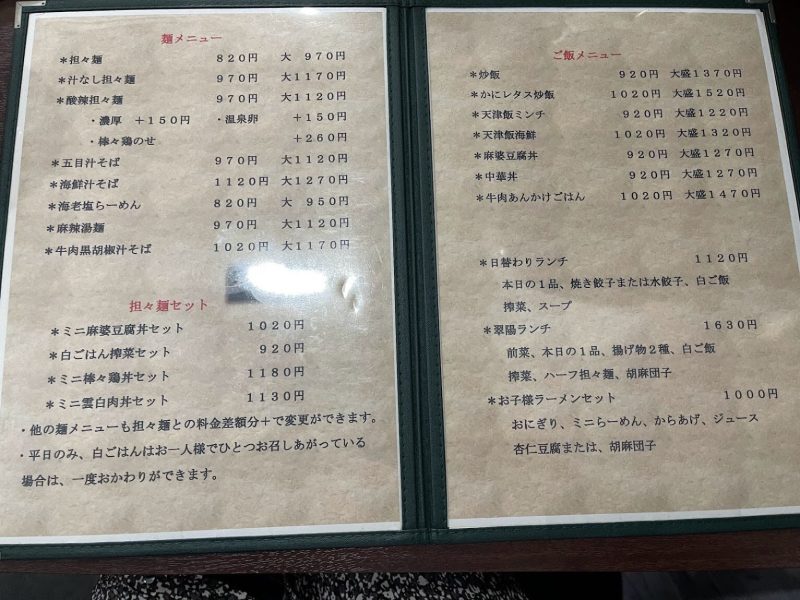 麺メニュー
＊担々麺 ８２０円 大 ９７０円
＊汁なし担々麺 ９７０円 大１１７０円
＊酸辣担々麺 ９７０円 大１１２０円
・濃厚 ＋１５０円 ・温泉卵 ＋１５０円
・棒々鶏のせ ＋２６０円
＊五目汁そば ９７０円 大１１２０円
＊海鮮汁そば １１２０円 大１２７０円
＊海老塩らーめん ８２０円 大 ９５０円
＊麻辣湯麺 ９７０円 大１１２０円
＊牛肉黒胡椒汁そば １０２０円 大１１７０円
担々麺セット
＊ミニ麻婆豆腐丼セット １０２０円
＊白ごはん搾菜セット ９２０円
＊ミニ棒々鶏丼セット １１８０円
＊ミニ雲白肉丼セット １１３０円
・他の麺メニューも担々麺との料金差額分＋で変更ができます。
・平日のみ、白ごはんはお一人様でひとつお召しあがっている
場合は、一度おかわりができます。
ご飯メニュー
＊炒飯 ９２０円 大盛１３７０円
＊かにレタス炒飯 １０２０円 大盛１５２０円
＊天津飯ミンチ ９２０円 大盛１２２０円
＊天津飯海鮮 １０２０円 大盛１３２０円
＊麻婆豆腐丼 ９２０円 大盛１２７０円
＊中華丼 ９２０円 大盛１２７０円
＊牛肉あんかけごはん １０２０円 大盛１４７０円
＊日替わりランチ １１２０円
本日の１品、焼き餃子または水餃子、白ご飯
搾菜、スープ
＊翠陽ランチ １６３０円
前菜、本日の１品、揚げ物２種、白ご飯
搾菜、ハーフ担々麺、胡麻団子
＊お子様ラーメンセット １０００円
おにぎり、ミニらーめん、からあげ、ジュース
杏仁豆腐または、胡麻団子